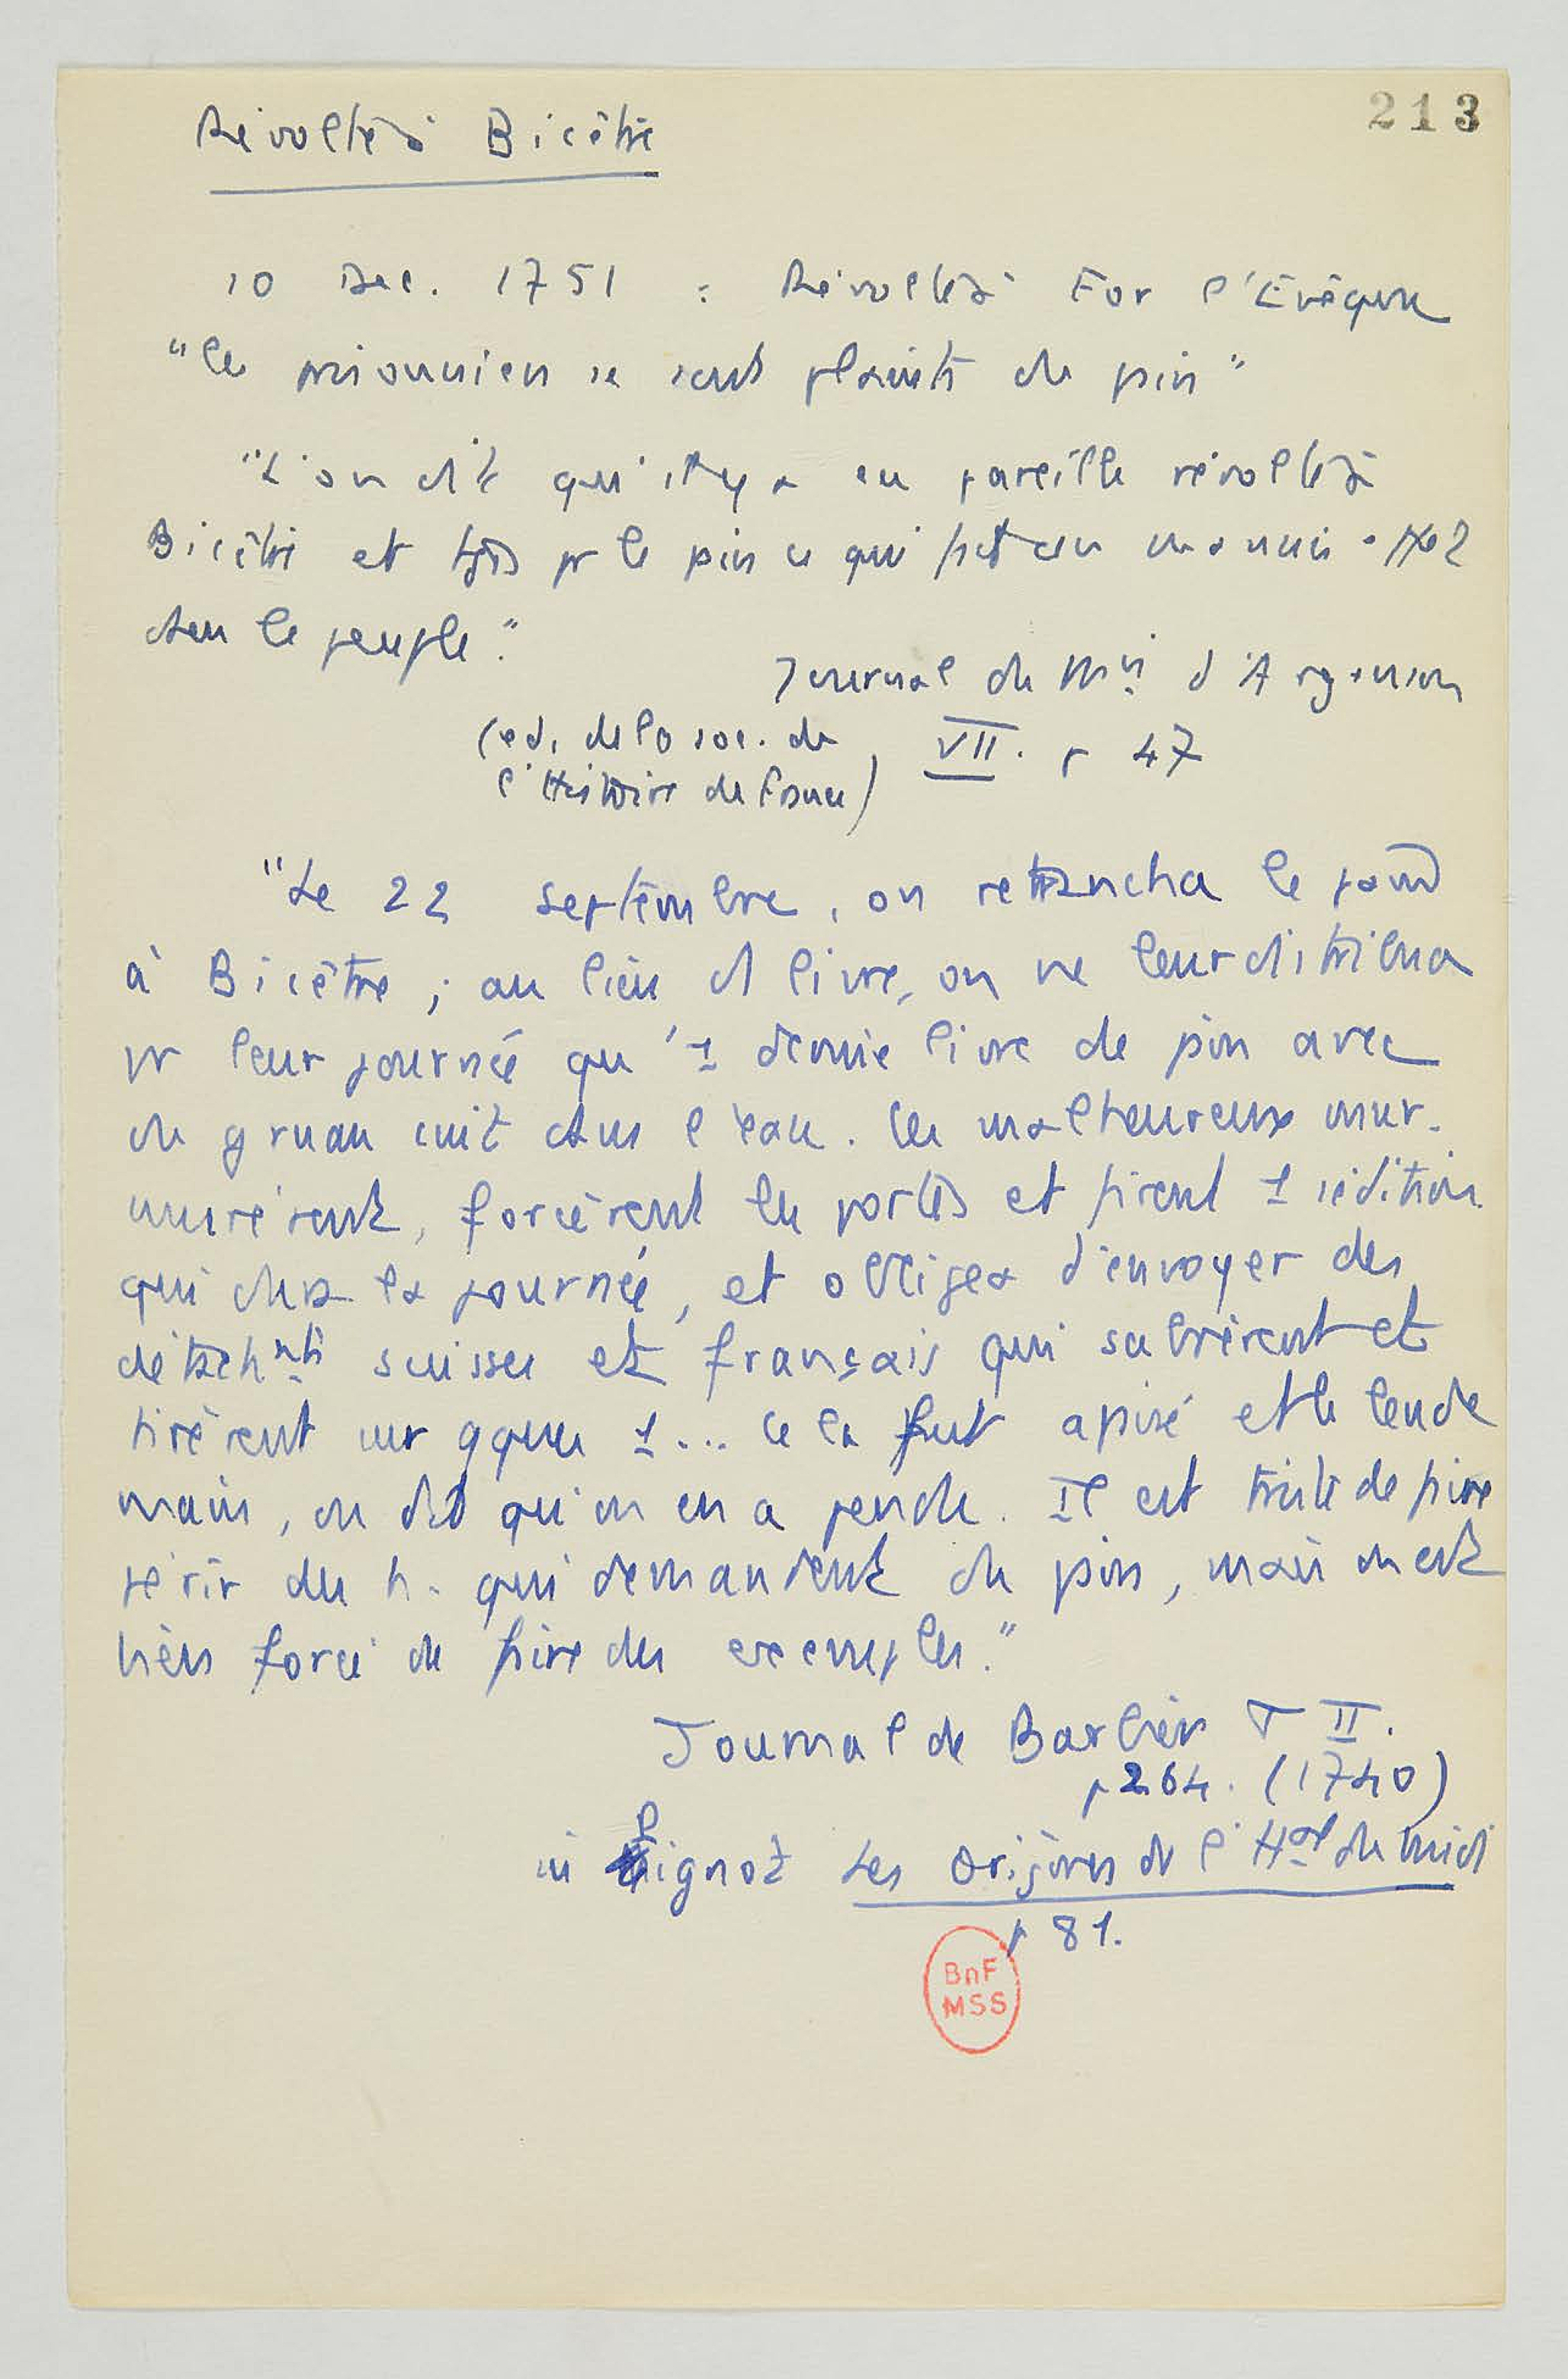 213
Révolte à Bicêtre
10 Dec. 1751 : Révolte à For l'Evêque
"les prisonniers se sont plaints du pain"
"L'on dit qu'il y a eu pareille révolte à
Bicêtre et tjrs pr le pain ce qui fait un mauvais effet
dans le peuple."
Journal du Mis d'Argenson
(ed. de la soc. de VII. p 47
l'Histoire de France)
"Le 22 septembre, on retrancha le pain
à Bicêtre ; au lieu d livre, on ne leur distribua
pr leur journée qu'1 demie livre de pain avec
du gruau cuit dans l'eau. Les malheureux mur-
murèrent, forcèrent les portes et firent 1 sédition
qui dura la journée, et obligea d'envoyer des
détachnts suisses et français qui sabrèrent et
tirèrent sur qques 1... Cela fut apaisé et le lende
main, on dit qu'on en a pendu. Il est triste de faire
périr des h. qui demandent du pain, mais on est
bien forcé de faire des exemples."
Journal de Barbier T II.
p 264. (1740)
in Pignot Les Origines de l'Hal du Midi
p 81.
BnF
MSS